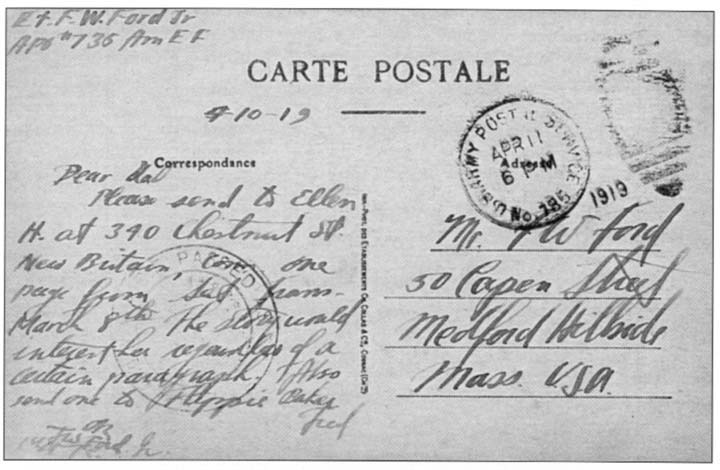 F. W. Ford Jr
APO #735 Am E F
CARTE POSTALE
4-10-19
Correspondance
Adresse
U.S. ARMY POSTAL SERVICE
APR 11
6 PM
No. 785
1919
Dear Dad
Please send to Ellen
H. at 390 Chestnut St.
New Britain, one
page from Sat
March 8th The story would
interest her regardless of a
certain paragraph. Also
send one to
Fred
PASSED
Ford Jr.
Mr. F W Ford
50 Capen Street
Medford Hillside
Mass. U.S.A.